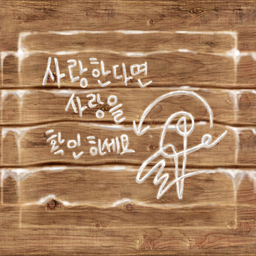 사랑한다면
사랑을
확인하세요